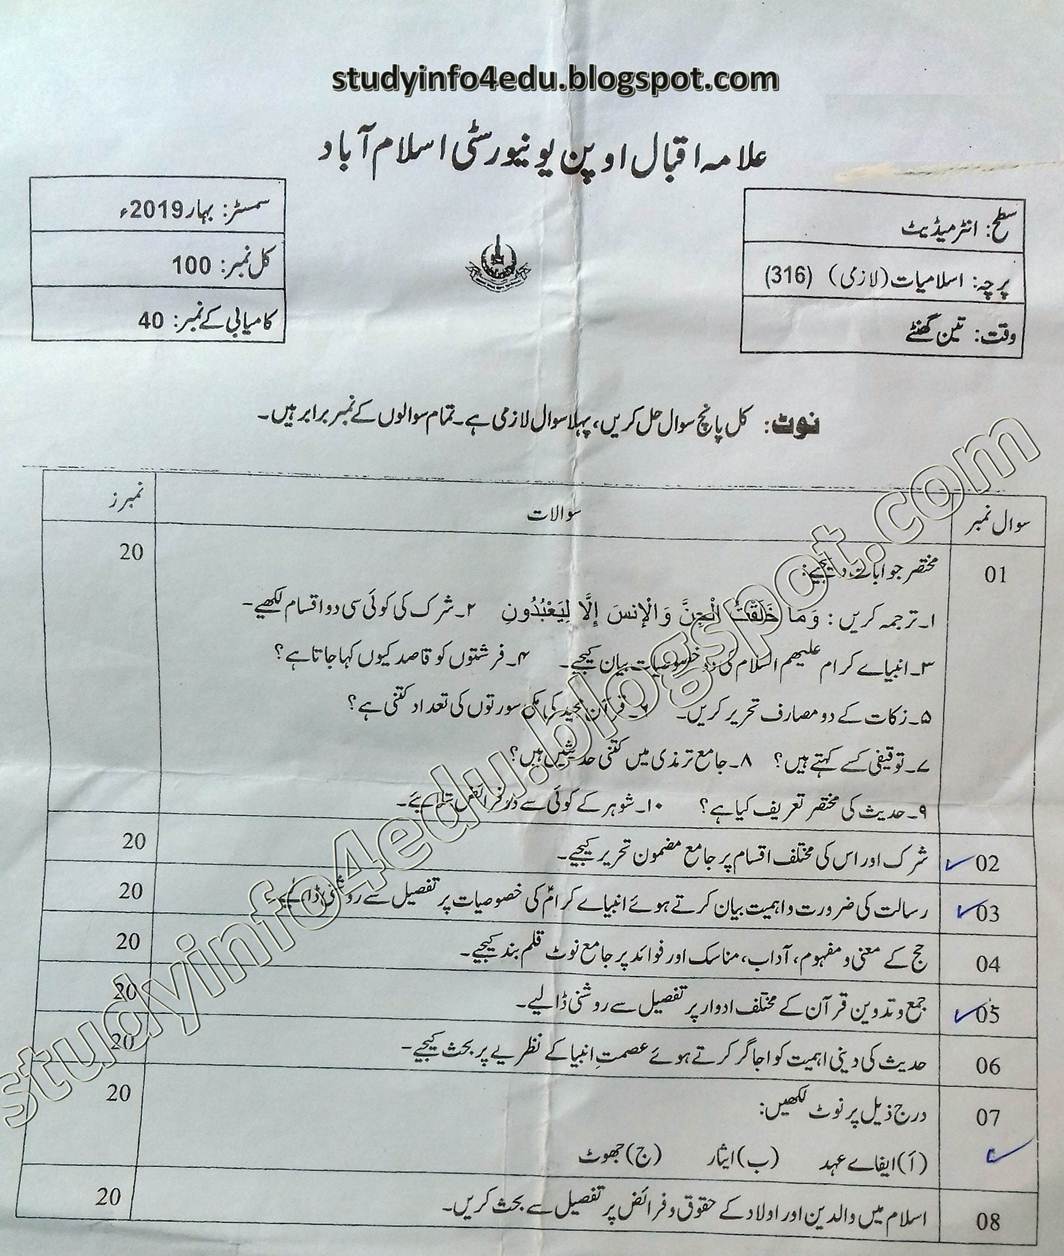 studyinfo4edu.blogspot.com
علامہ اقبال اوپن یونیورسٹی اسلام آباد
سطح: انٹرمیڈیٹ
پرچہ: اسلامیات (لازمی) (316)
وقت: تین گھنٹے
سمسٹر: بہار 2019ء
کل نمبر: 100
کامیابی کے نمبر: 40
نوٹ: کل پانچ سوال حل کریں، پہلا سوال لازمی ہے۔ تمام سوالوں کے نمبر برابر ہیں۔
سوال نمبر سوالات نمبرز
01 مختصر جوابات دیجیے: 20
۱۔ ترجمہ کریں: وَمَا خَلَقْتُ الْجِنَّ وَالْإِنسَ إِلَّا لِيَعْبُدُونِ ۲۔ شرک کی کوئی سی دو اقسام لکھیے۔
۳۔ انبیاے کرام علیھم السلام کی دو خصوصیات بیان کیجیے۔ ۴۔ فرشتوں کو قاصد کیوں کہا جاتا ہے؟
۵۔ زکات کے دو مصارف تحریر کریں۔ ۶۔ قرآن مجید کی مکی سورتوں کی تعداد کتنی ہے؟
۷۔ توقیفی کسے کہتے ہیں؟ ۸۔ جامع ترمذی میں کتنی حدیثیں ہیں؟
۹۔ حدیث کی مختصر تعریف کیا ہے؟ ۱۰۔ شوہر کے کوئی سے دو فرائض
02 شرک اور اس کی مختلف اقسام پر جامع مضمون تحریر کیجیے۔ 20
03 رسالت کی ضرورت و اہمیت بیان کرتے ہوئے انبیاے کرامؑ کی خصوصیات پر تفصیل سے روشنی ڈالیے۔ 20
04 حج کے معنی و مفہوم، آداب، مناسک اور فوائد پر جامع نوٹ قلم بند کیجیے۔ 20
05 جمع و تدوین قرآن کے مختلف ادوار پر تفصیل سے روشنی ڈالیے۔ 20
06 حدیث کی دینی اہمیت کو اجاگر کرتے ہوئے عصمتِ انبیا کے نظریے پر بحث کیجیے۔ 20
07 درج ذیل پر نوٹ لکھیں: 20
(أ) ایفاے عہد (ب) ایثار (ج) جھوٹ
08 اسلام میں والدین اور اولاد کے حقوق و فرائض پر تفصیل سے بحث کریں۔ 20
studyinfo4edu.blogspot.com